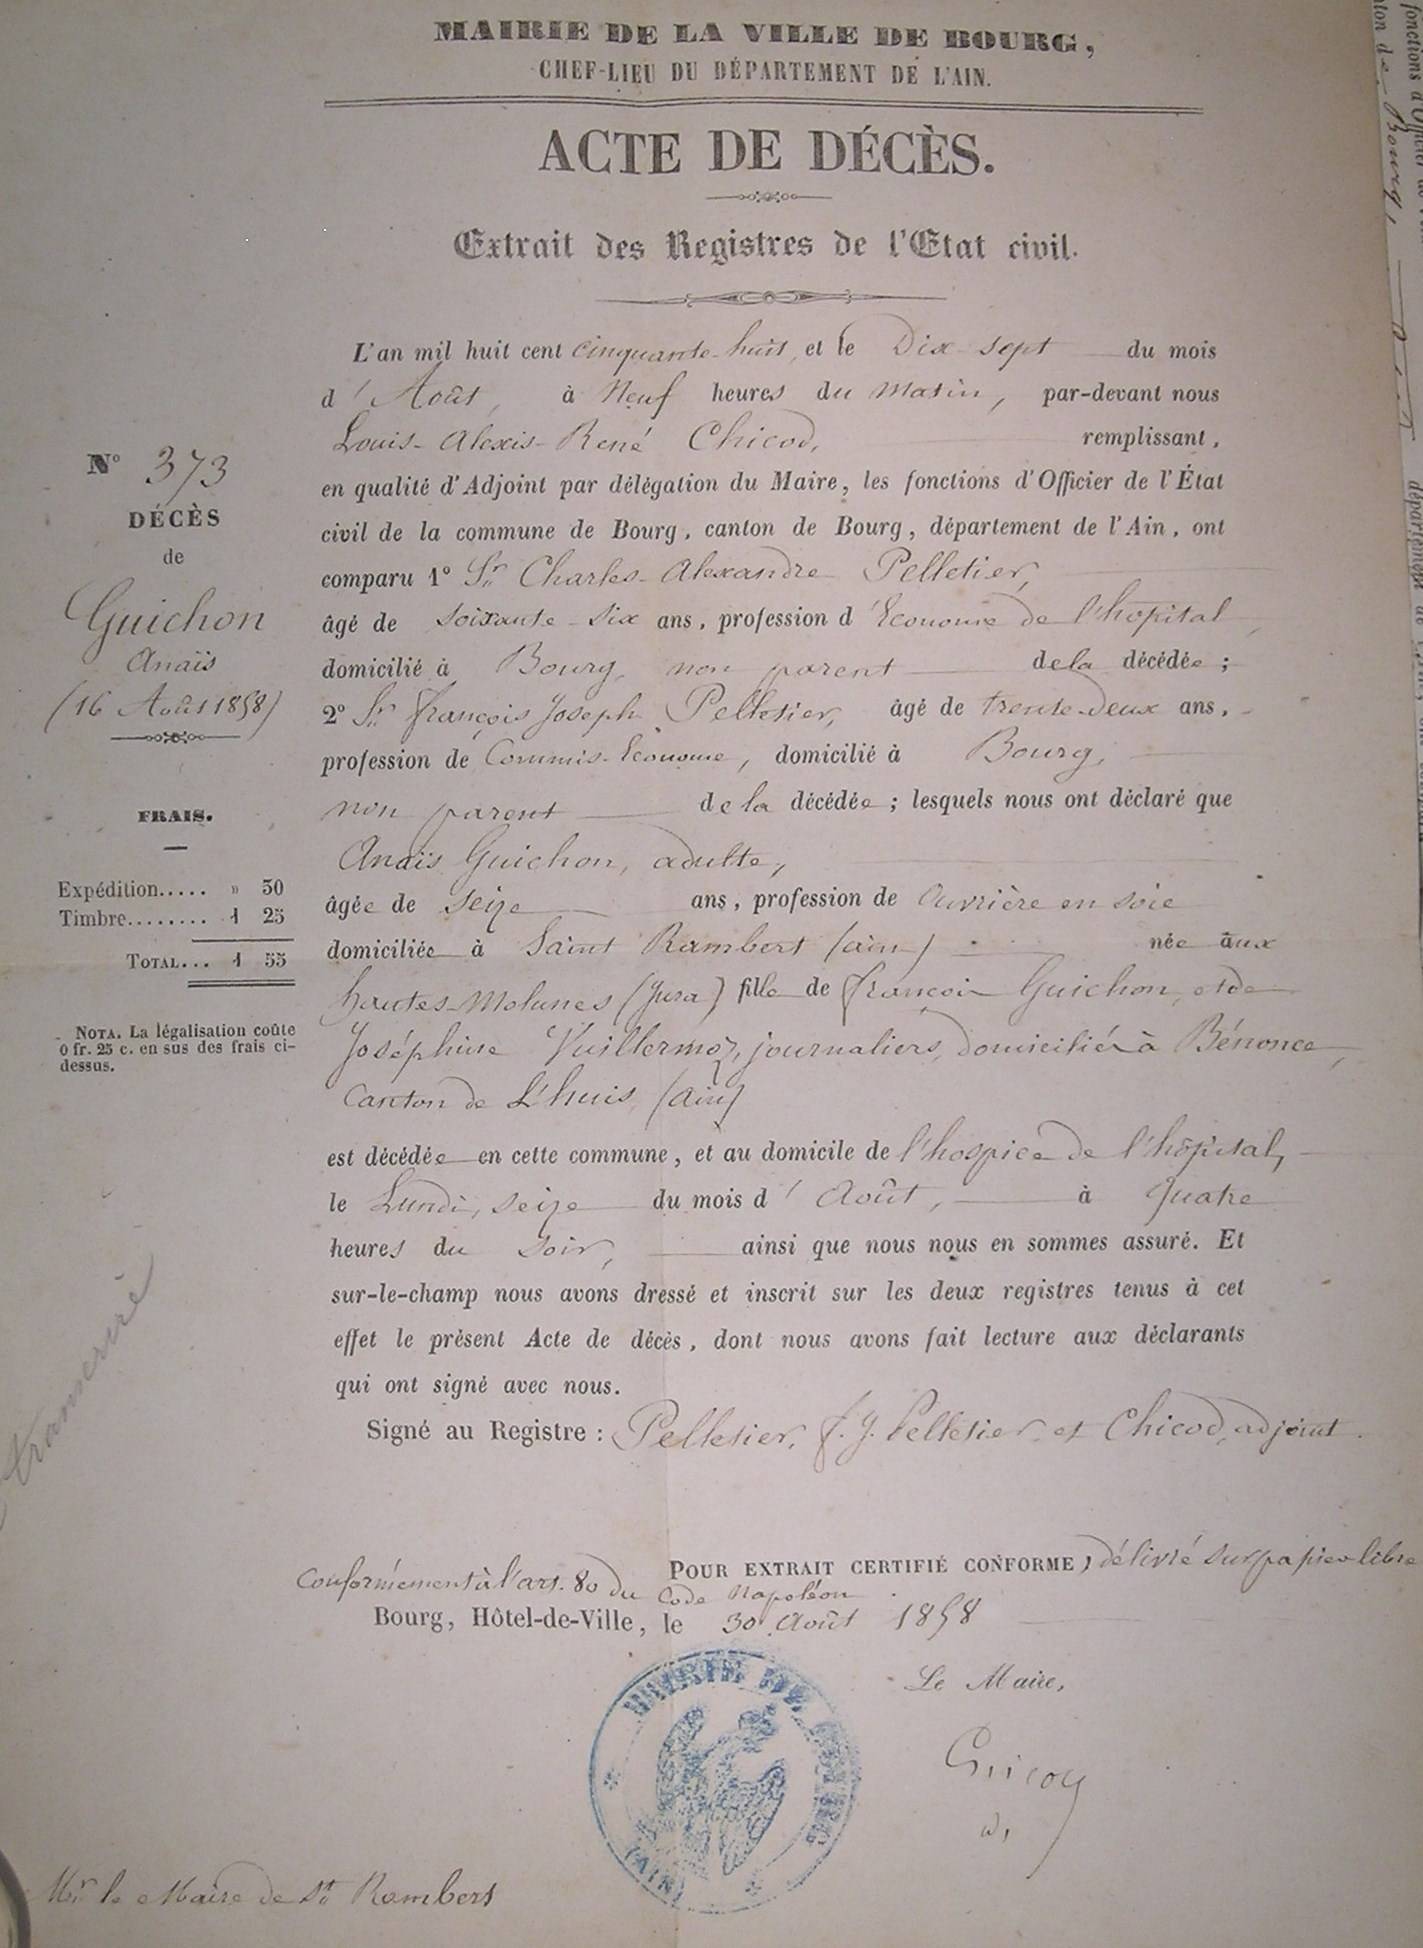 MAIRIE DE LA VILLE DE BOURG,
CHEF-LIEU DU DÉPARTEMENT DE L'AIN.
ACTE DE DÉCÈS.
Extrait des Registres de l'Etat civil.
N° 373
DÉCÈS
de
Guichon
Anaïs
(16 Août 1858)
FRAIS.
Expédition..... » 30
Timbre........ 1 25
TOTAL... 1 55
NOTA. La légalisation coûte
0 fr. 25 c. en sus des frais ci-
dessus.
L'an mil huit cent cinquante-huit, et le Dix sept du mois
d'Août, à Neuf heures du matin, par-devant nous
Louis-Alexis-René Chicod, remplissant,
en qualité d'Adjoint par délégation du Maire, les fonctions d'Officier de l'État
civil de la commune de Bourg, canton de Bourg, département de l'Ain, ont
comparu 1° Sr Charles-Alexandre Pelletier,
âgé de soixante-six ans, profession d'Econome de l'hôpital,
domicilié à Bourg, non parent de la décédée;
2° Sr françois Joseph Pelletier, âgé de trente-deux ans,
profession de Commis-Econome, domicilié à Bourg,
non parent de la décédée; lesquels nous ont déclaré que
Anaïs Guichon, adulte,
âgée de seize ans, profession de ouvrière en soie
domiciliée à Saint Rambert (ain) née aux
hautes-Molunes (Jura) fille de françois Guichon, et de
Joséphine Vuillermoz, journaliers, domiciliés à Bénonce,
Canton de L'huis (ain)
est décédée en cette commune, et au domicile de l'hospice de l'hôpital,
le Lundi, seize du mois d'Août, à quatre
heures du soir, ainsi que nous nous en sommes assuré. Et
sur-le-champ nous avons dressé et inscrit sur les deux registres tenus à cet
effet le présent Acte de décès, dont nous avons fait lecture aux déclarants
qui ont signé avec nous.
Signé au Registre : Pelletier, f. J. Pelletier et Chicod, adjoint.
POUR EXTRAIT CERTIFIÉ CONFORME, délivré sur papier libre
conformément à l'art. 80 du Code Napoléon
Bourg, Hôtel-de-Ville, le 30 Août 1858
Le Maire,
MAIRIE DE BOURG
(AIN)
Mr le Maire de St Rambert
de Bourg,